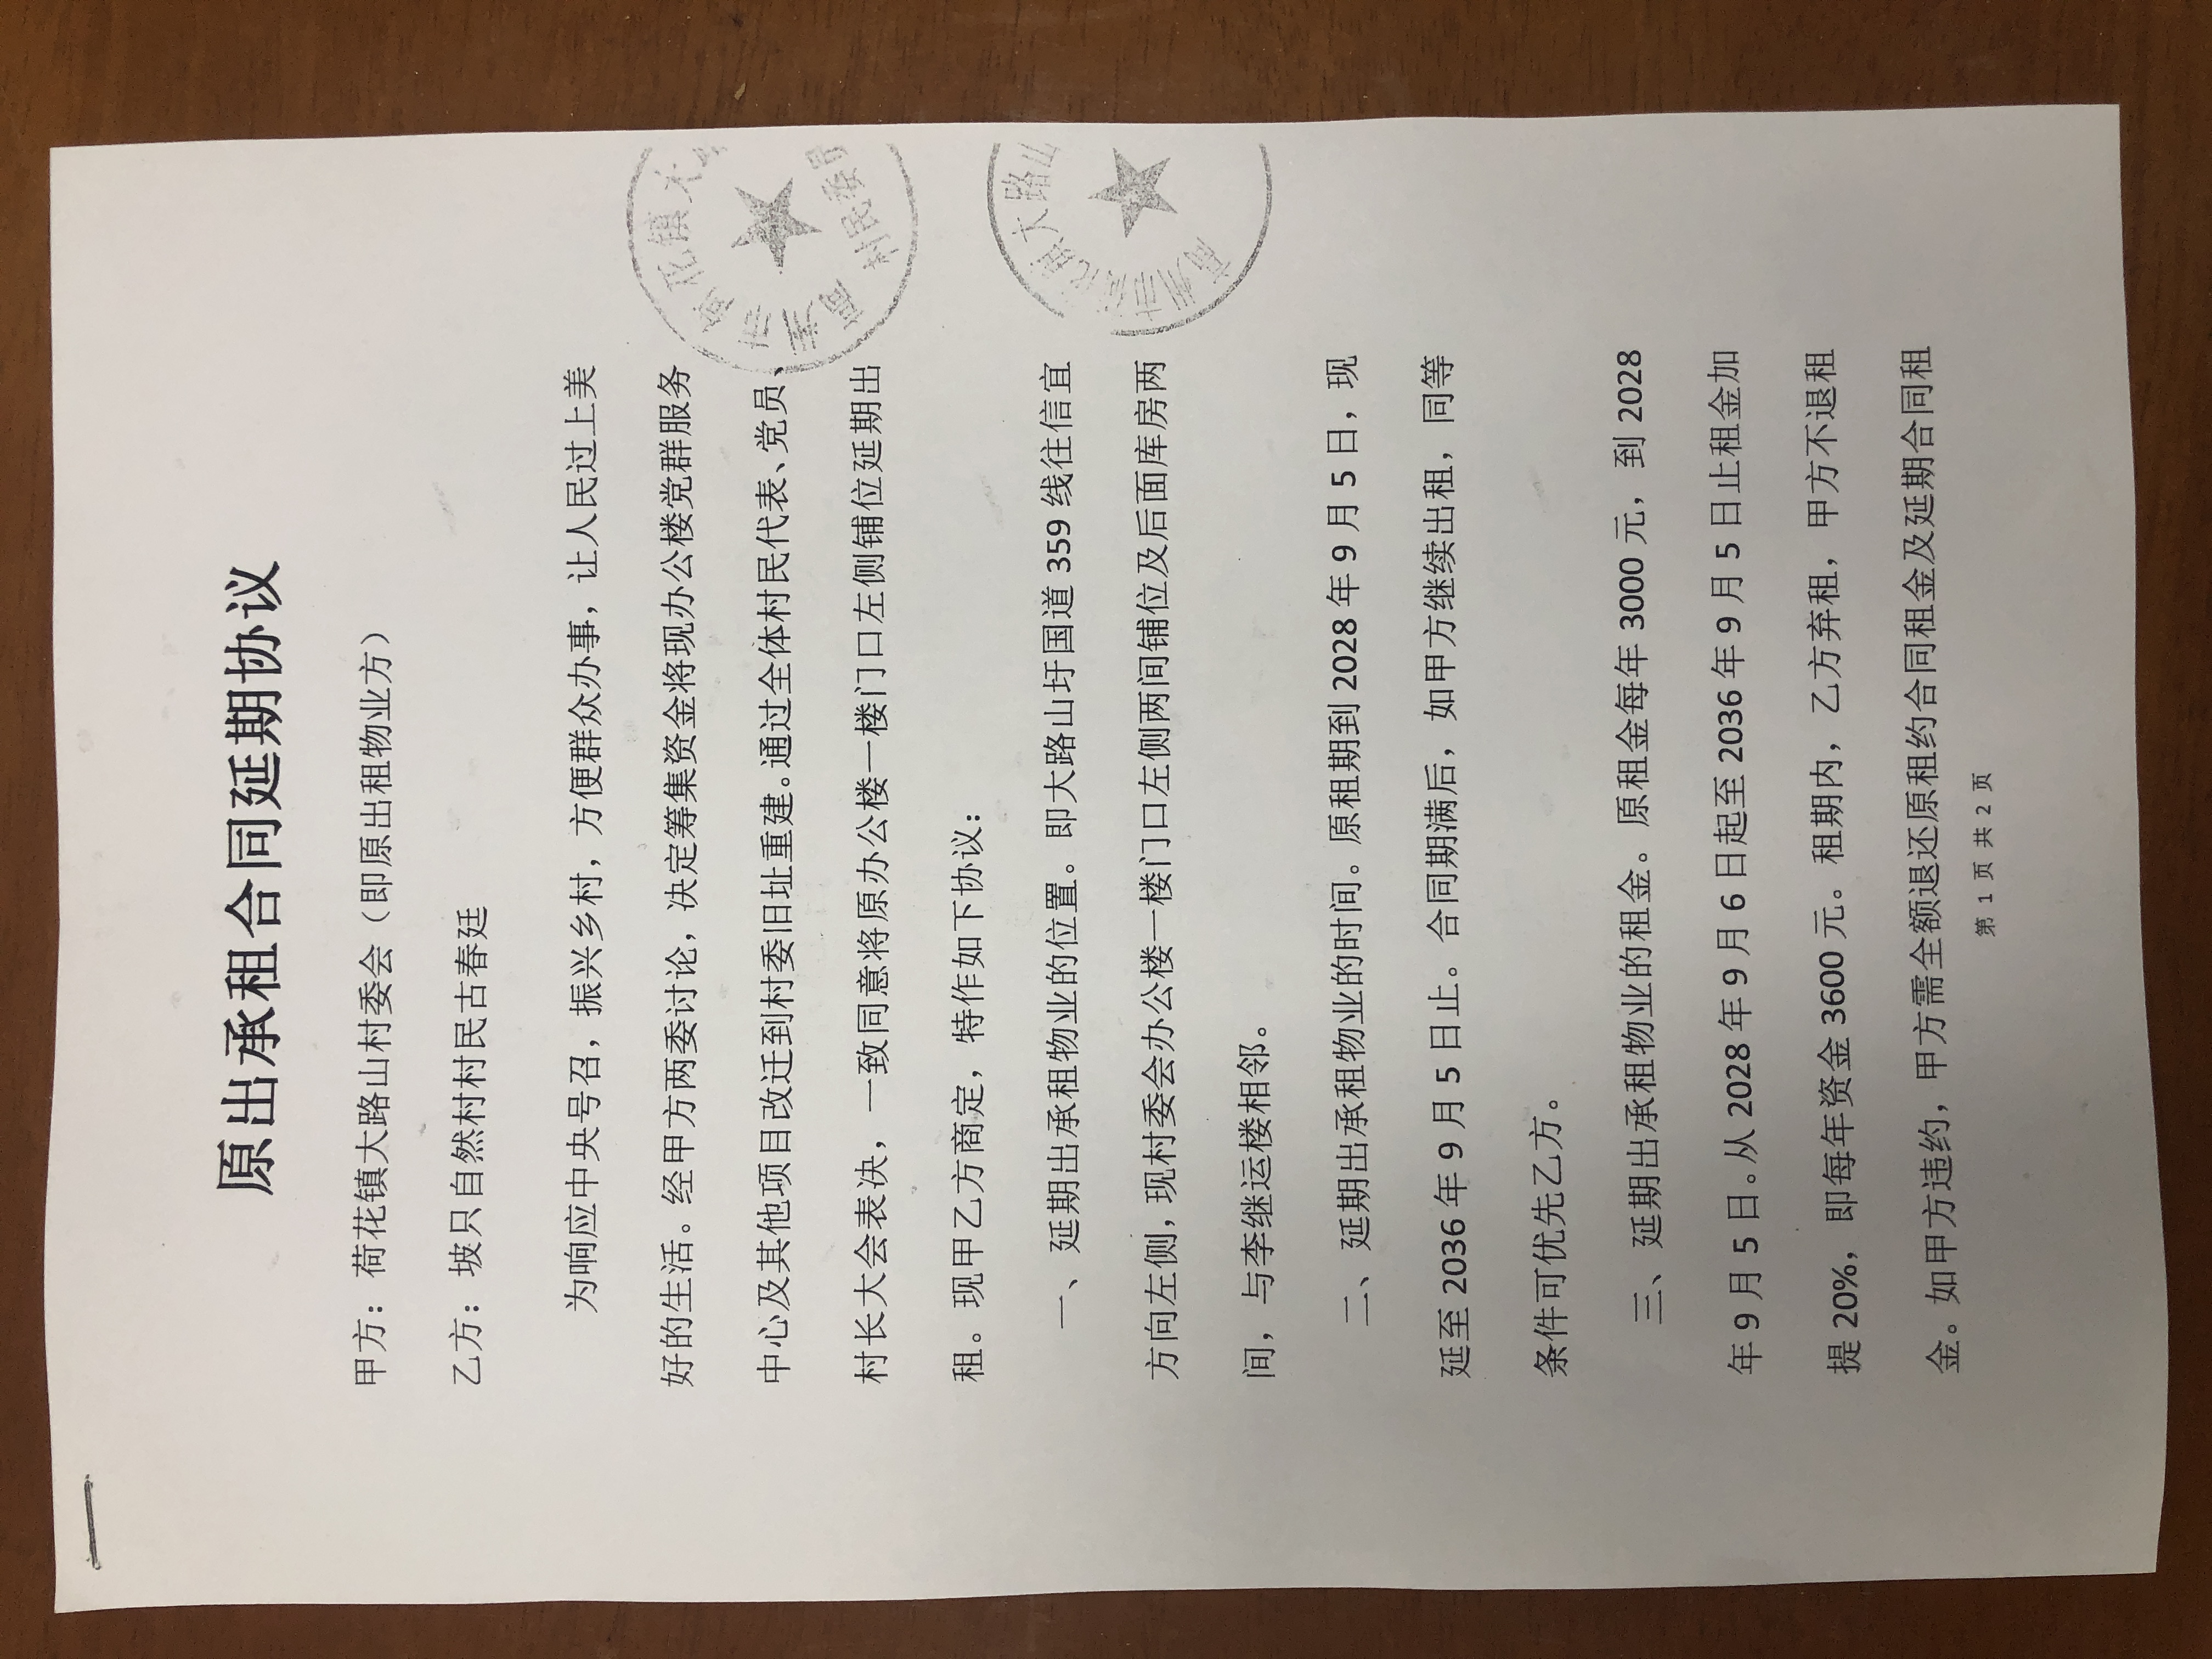 原出承租合同延期协议
甲方：荷花镇大路山村委会（即原出租物业方）
乙方：坡只自然村村民古春廷
为响应中央号召，振兴乡村，方便群众办事，让人民过上美
好的生活。经甲方两委讨论，决定筹集资金将现办公楼党群服务
中心及其他项目改迁到村委旧址重建。通过全体村民代表、党员、
村长大会表决，一致同意将原办公楼一楼门口左侧铺位延期出
租。现甲乙方商定，特作如下协议：
一、延期出承租物业的位置。即大路山圩国道 359 线往信宜
方向左侧，现村委会办公楼一楼门口左侧两间铺位及后面库房两
间，与李继运楼相邻。
二、延期出承租物业的时间。原租期到 2028 年 9 月 5 日，现
延至 2036 年 9 月 5 日止。合同期满后，如甲方继续出租，同等
条件可优先乙方。
三、延期出承租物业的租金。原租金每年 3000 元，到 2028
年 9 月 5 日。从 2028 年 9 月 6 日起至 2036 年 9 月 5 日止租金加
提 20%，即每年资金 3600 元。租期内，乙方弃租，甲方不退租
金。如甲方违约，甲方需全额退还原租约合同租金及延期合同租
第 1 页 共 2 页
高州市荷花镇大
村民委员
高州市荷花镇大路山